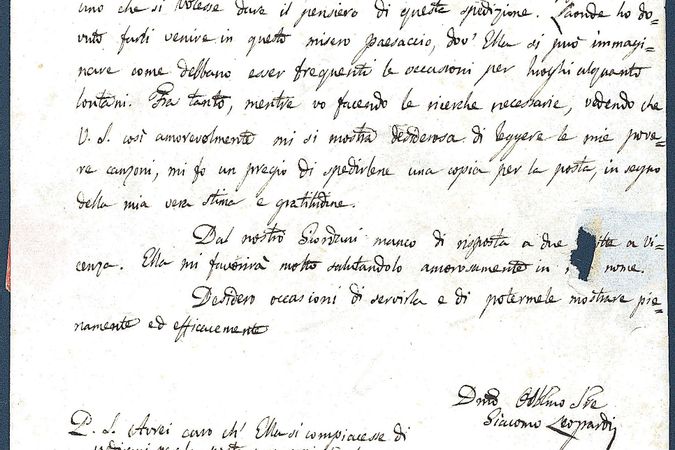 uno che si volesse dare il pensiero di questa spedizione. Laonde ho do=
vuto farli venire in questo misero paesaccio, dov' Ella si può immagi=
nare come debbano esser frequenti le occasioni per luoghi alquanto
lontani. Fra tanto, mentre vo facendo le ricerche necessarie, vedendo che
V. S. così amorevolmente mi si mostra desiderosa di leggere le mie pove=
re canzoni, mi fo un pregio di spedirlene una copia per la posta, in segno
della mia vera stima e gratitudine.
Dal nostro Giordani manco di risposta a due a Vi=
cenza. Ella mi favorirà molto salutandolo amorosamente in nome.
Desidero occasioni di servirla e di potermele mostrare pie=
namente ed efficacemente
Giacomo Leopardi
P. S. Avrei caro ch' Ella si compiacesse di